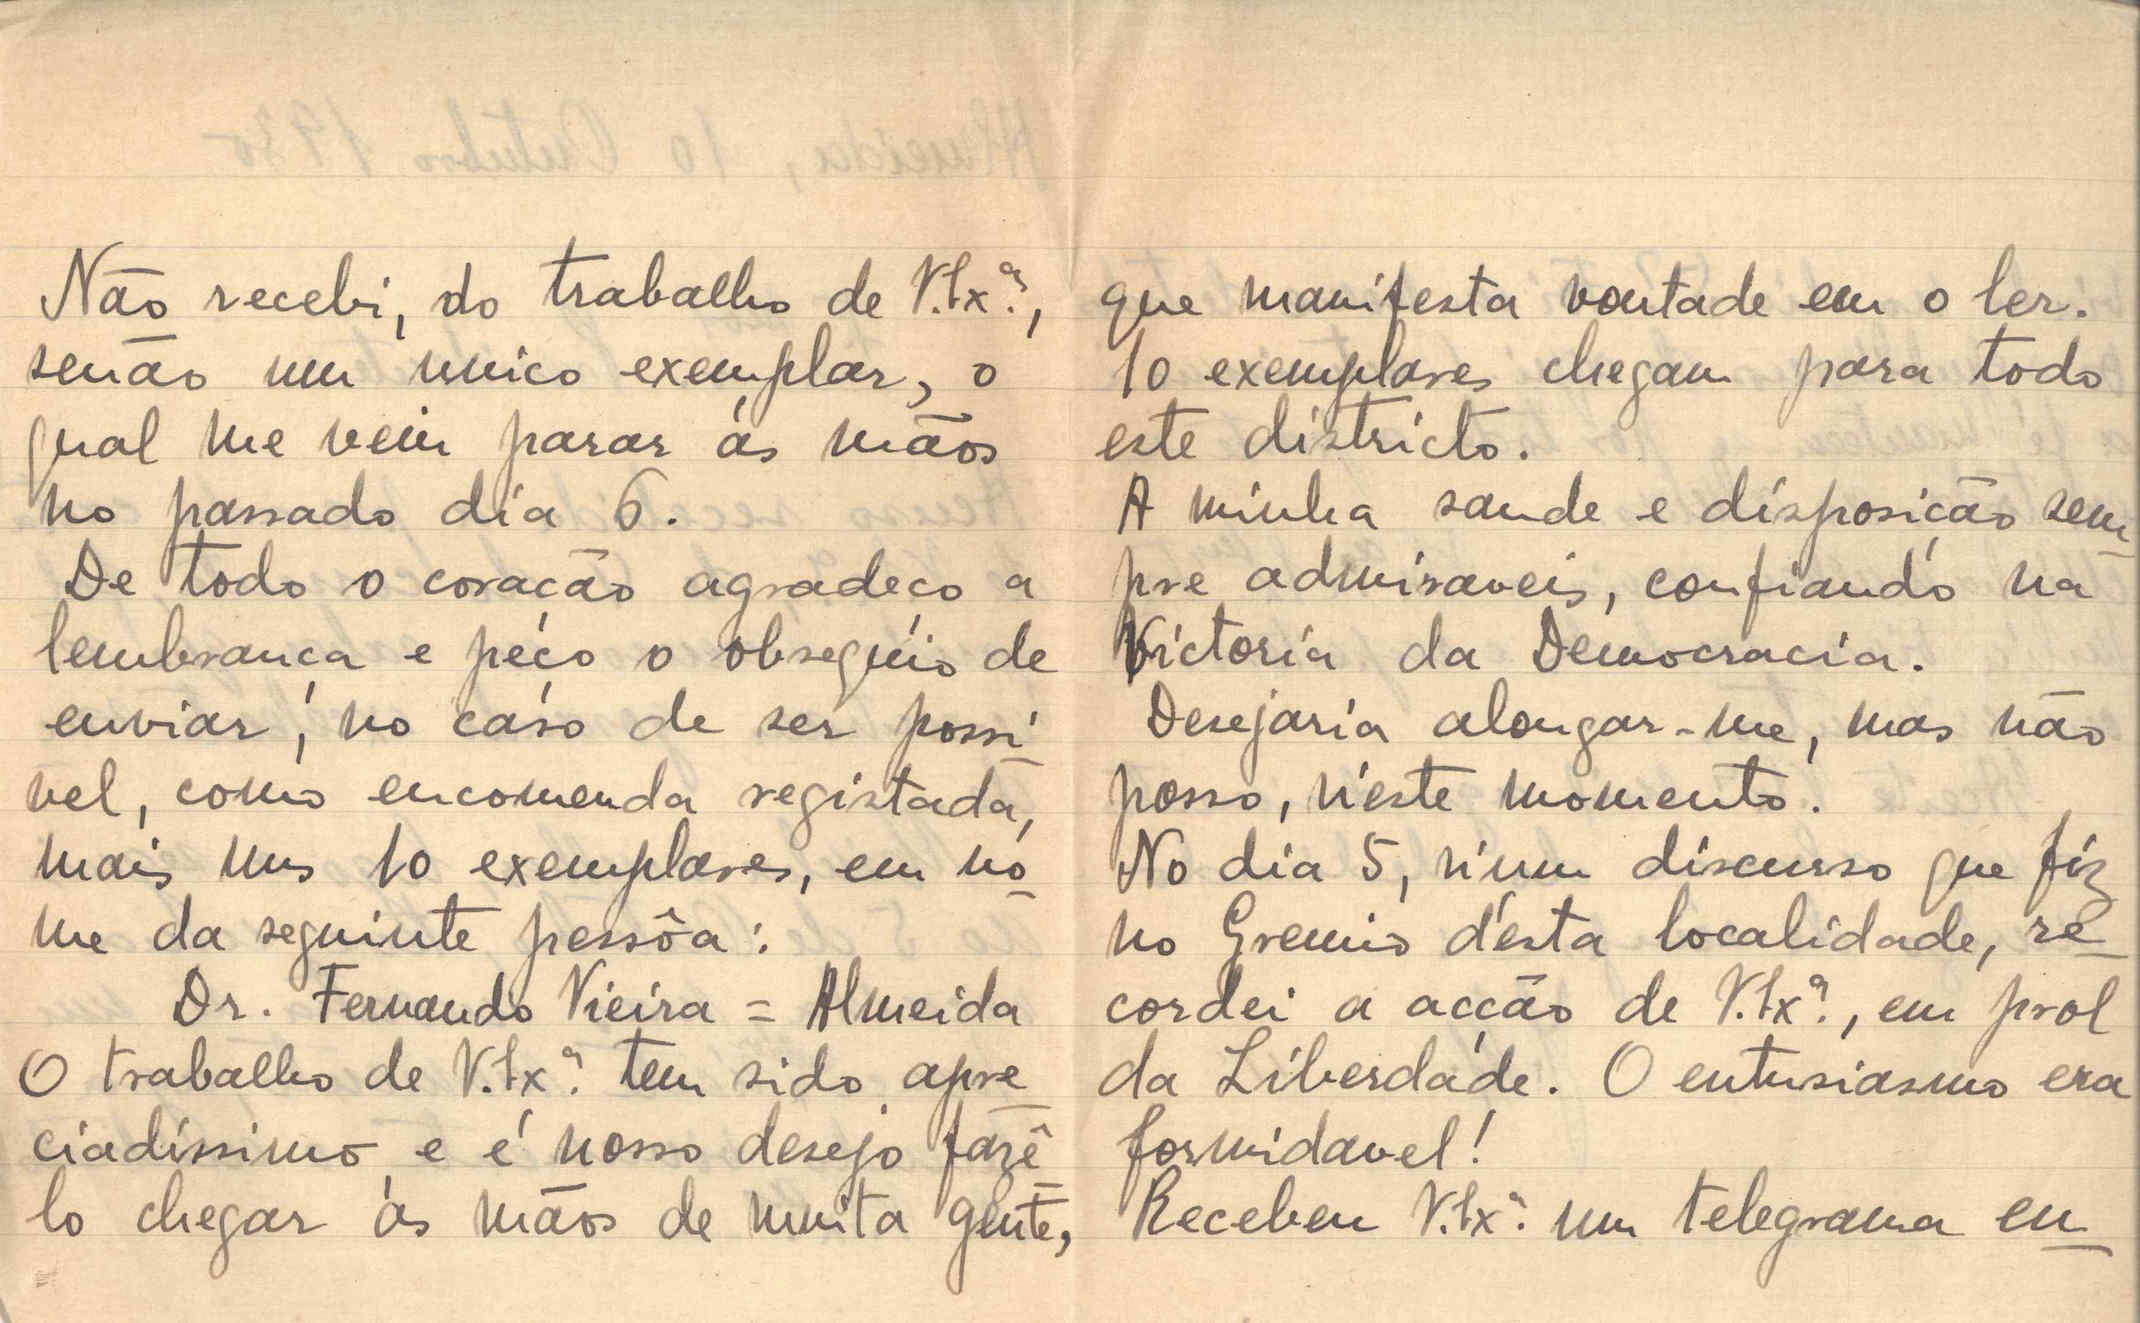 Não recebi, do trabalho de V. Exª.,
senão um unico exemplar, o
qual me veiu parar ás mãos
no passado dia 6.
De todo o coração agradeço a
lembrança e peço o obsequio de
enviar, no caso de ser possi
vel, como encomenda registada,
mais uns 10 exemplares, em no
me da seguinte pessôa:
Dr. Fernando Vieira = Almeida
O trabalho de V. Exª. tem sido apre
ciadissimo e é nosso desejo fazê
lo chegar ás mãos de muita gente,
que manifesta vontade em o ler.
10 exemplares chegam para todo
este districto.
A minha saude e disposição sem
pre admiraveis, confiando na
Victoria da Democracia.
Desejaria alongar-me, mas não
posso, n'este momento.
No dia 5, n'um discurso que fiz
no Gremio d'esta localidade, re
cordei a acção de V. Exª., em prol
da Liberdade. O entusiasmo era
formidavel!
Recebeu V. Exª. um telegrama en